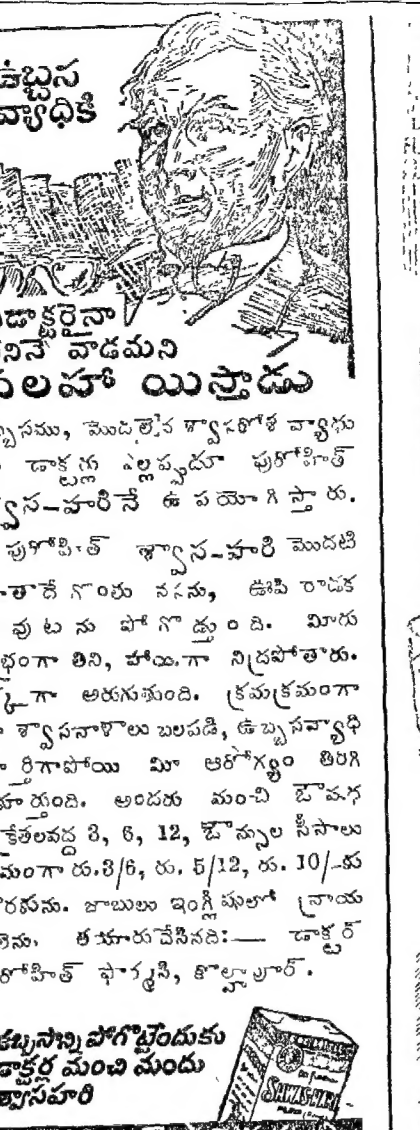 ఉబ్బస
వ్యాధికి
డాక్టరైనా
వాడమని
సలహా యిస్తాడు
మొదలైన శ్వాసకోశ వ్యాధు
డాక్టర్లు ఎల్లప్పుడూ పురోహిత్
శ్వాస-హారినే ఉపయోగిస్తారు.
పురోహిత్ శ్వాస-హారి మొదటి
గొంతు నసను, ఊపి రాడక
పోగొడ్తుంది. మీరు
తిని, హాయిగా నిద్రపోతారు.
అరుగుతుంది. క్రమక్రమంగా
శ్వాసనాళాలు బలపడి, ఉబ్బసవ్యాధి
ర్తిగాపోయి మీ ఆరోగ్యం తిరిగి
అందరు మంచి ఔషధ
క్రేతలవద్ద 3, 6, 12, ఔన్సుల సీసాలు
రు.3/6, రు. 5/12, రు. 10/-కు
జాబులు ఇంగ్లీషులో వ్రాయ
తయారుచేసినది:— డాక్టర్
రోహిత్ ఫార్మసి, కొల్హాపూర్.
ఉబ్బసాన్ని పోగొట్టేందుకు
డాక్టర్ల మంచి మందు
శ్వాసహారి
SAWAS-HARI